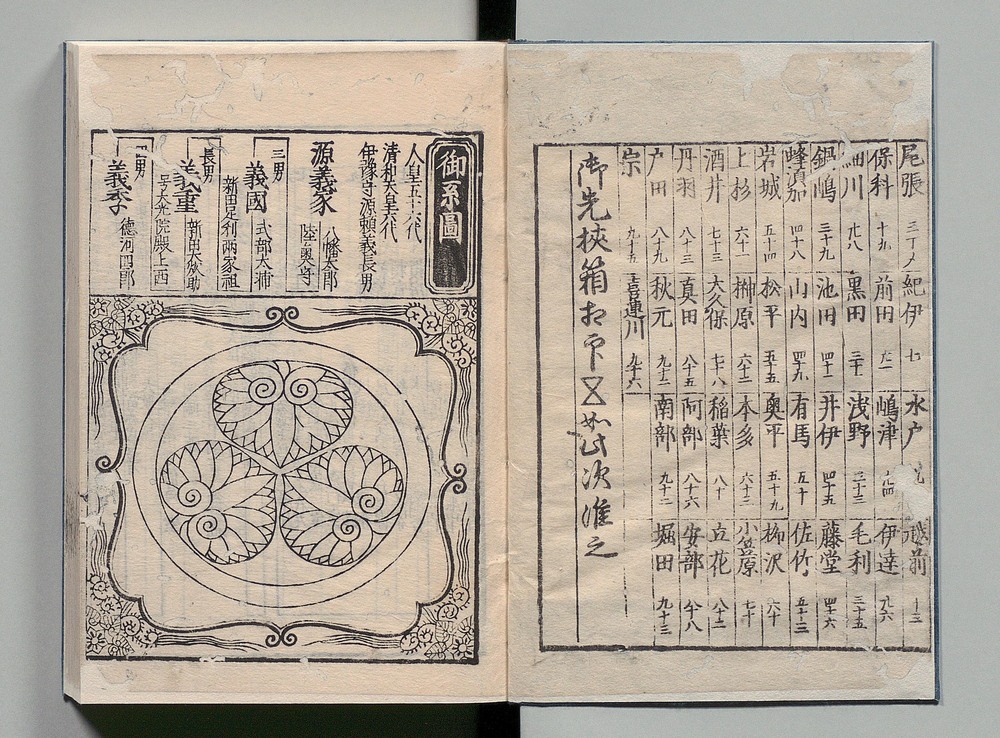 尾張 三丁メ 紀伊 七 水戸 越前 十三
保科 十九 前田 嶋津 伊達
細川 黒田 三十 浅野 三十三 毛利 三十五
鍋嶋 三十九 池田 四十 井伊 四十五 藤堂 四十六
蜂須加 四十八 山内 四十九 有馬 五十 佐竹 五十三
岩城 五十四 松平 五十五 奥平 五十九 柳沢 六十
上杉 六十一 榊原 六十二 本多 六十三 小笠原 七十
酒井 七十三 大久保 七十八 稲葉 八十 立花 八十二
丹羽 八十三 真田 八十五 阿部 八十六 安部 八十八
戸田 八十九 秋元 九十一 南部 九十二 堀田 九十三
宗 九十五 喜連川 九十六
御先挾箱
如此次准之
御系圖
人皇五十六代
清和天皇六代
伊豫守源頼義長男
源義家 八幡太郎
陸奥守
三男
義國 式部太輔
新田足利両家祖
長男
義重 新田大炊助
号大光院殿上西
義季 徳河四郎